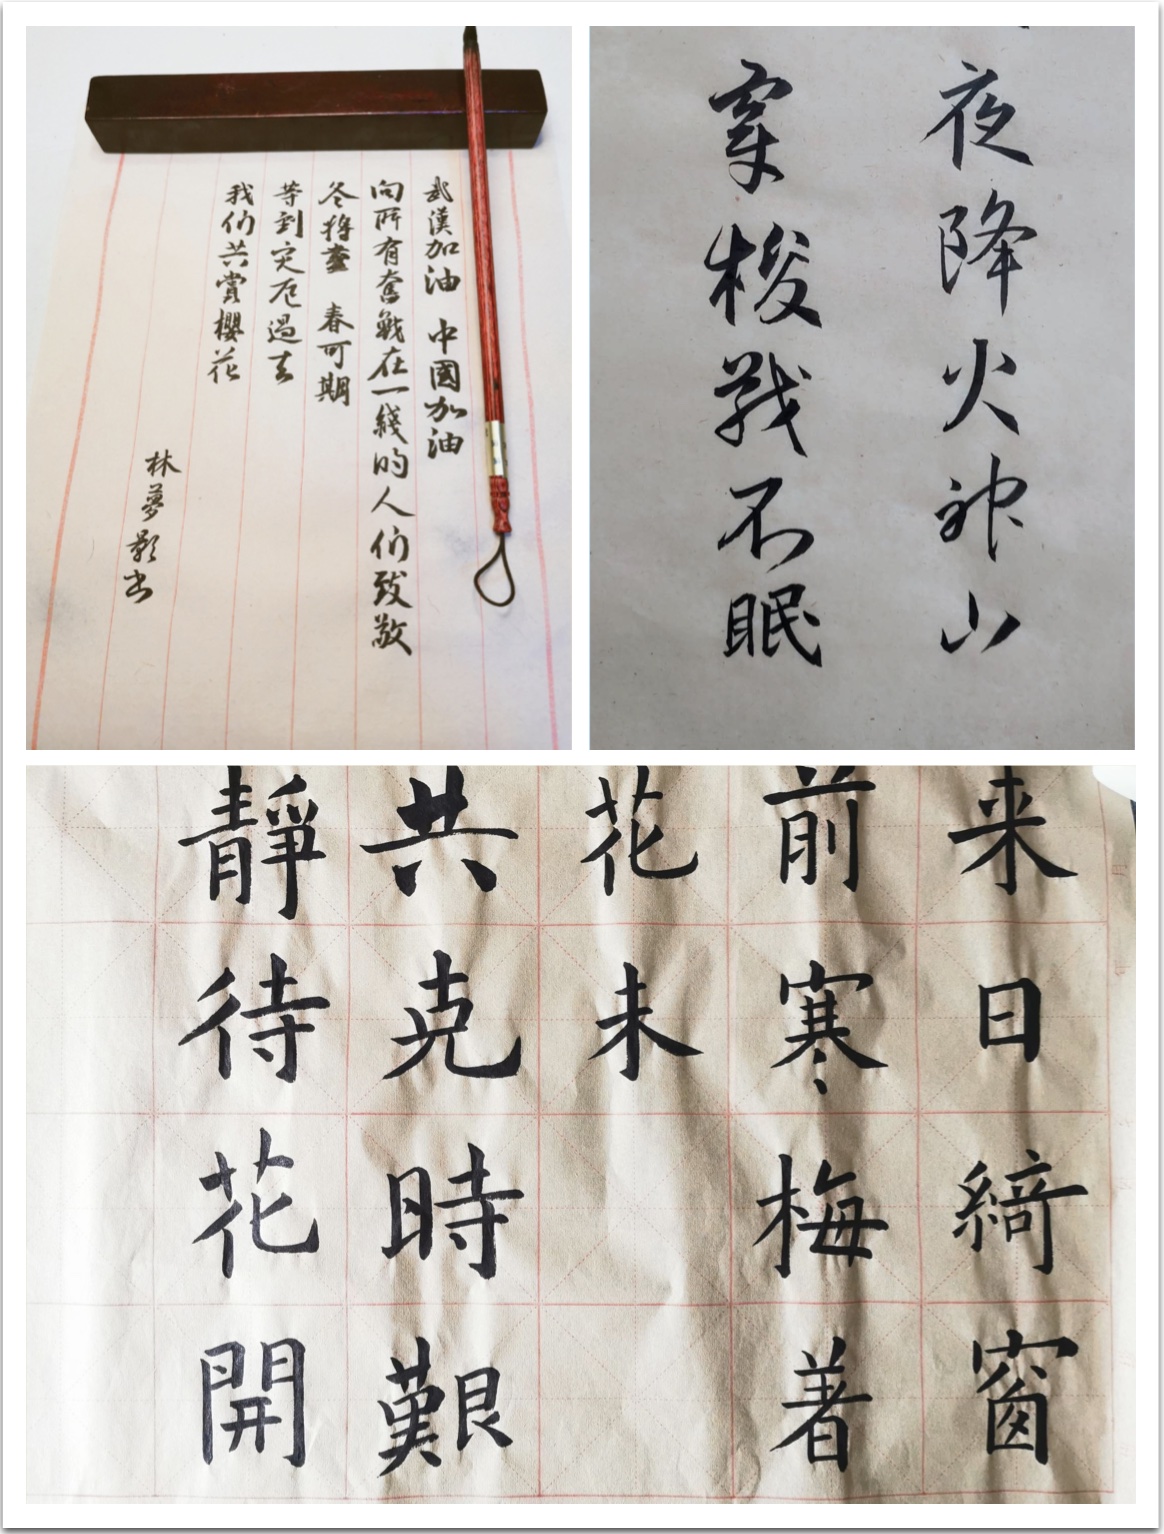 武漢加油 中國加油
向所有奮戰在一綫的人们致敬
冬將盡 春可期
等到灾厄過去
我们共賞櫻花
林夢影书
夜降火神山
穿梭戰不眠
来日綺窗
前寒梅着
花未
共克時艱
靜待花開